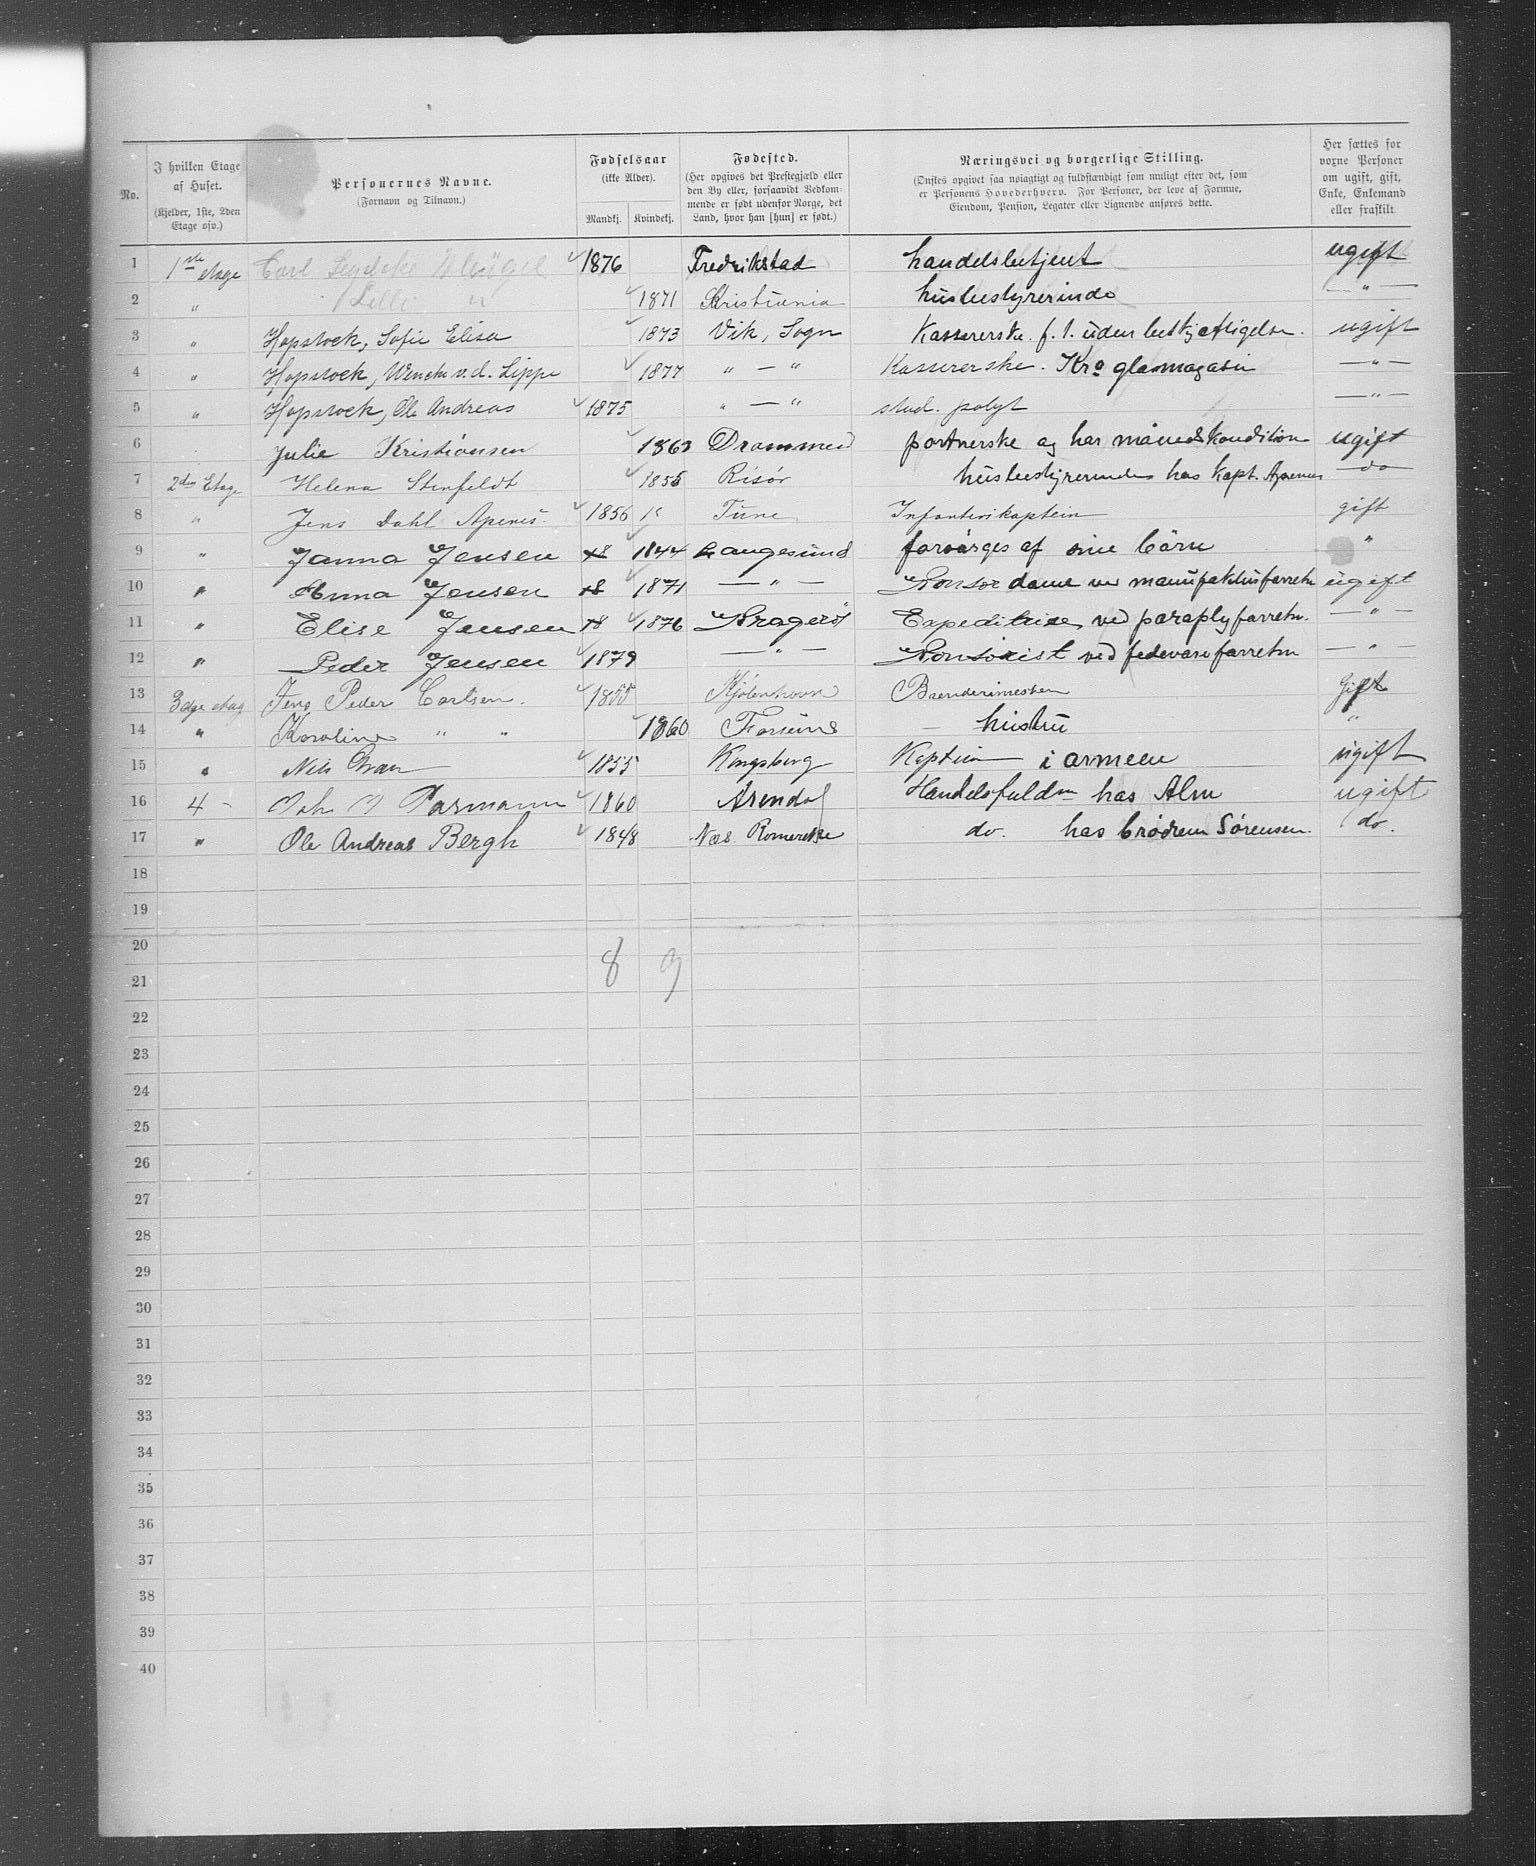 No.
I hvilken Etage af Huset.
(Kjelder, 1ste, 2den Etage osv.)
Personernes Navne.
(Fornavn og Tilnavn.)
Fødselsaar
(ikke Alder).
Mandkj. Kvindekj.
Fødested.
(Her opgives det Præstegjæld eller
den By eller, forsaavidt Vedkom-
mende er født udenfor Norge, det
Land, hvor han [hun] er født.)
Næringsvei og borgerlige Stilling.
(Ønskes opgivet saa nøiagtigt og fuldstændigt som muligt efter det, som
er Personens Hovederhverv. For Personer, der leve af Formue,
Eiendom, Pension, Legater eller Lignende anføres dette.
Her sættes for
voxne Personer
om ugift, gift,
Enke, Enkemand
eller fraskilt
1 1ste etage Carl Klügel 1876 Fredrikstad handelsbetjent ugift
2 " 1871 Kristiania husbestyrerinde — " —
3 " Hopstock, Sofie Elisa 1873 Vik, Sogn Kassererske. f. t. uden beskjæftigelse. ugift
4 " Hopstock, Wencke v.d. Lippe 1877 " — " Kassererske. Kra glasmagasin — " —
5 " Hopstock, Ole Andreas 1875 " — " stud. polyt — " —
6 Julie Kristiansen 1863 Drammen portnerske og har månedskondition ugift
7 2den Etage Helena Stenfeldt 1855 Risør husbestyrerinde hos Kapt. Apenes do
8 " Jens Dahl Apenes 1856 Tune Infanterikaptein gift
9 " Janna Jensen 18 1844 Langesund forsørges af sine børn "
10 " Anna Jensen 18 1871 — " — Kontordame ved manufakturforretn ugift
11 " Elise Jensen 18 1876 Kragerø Expeditrice ved paraplyforretn. — " —
12 " Peder Jensen 1879 — " — Kontorist ved fedevareforretn — " —
13 3dge etag Jens Peder Carlsen. 1855 Kjøbenhavn Brænderimester Gift
14 " Karoline " " 1860 — hustru "
15 " Nils Gran 1855 Kongsberg Kaptein i armeen ugift
16 4 — Parmann 1860 Arendal Handelsfuldm hos Alm ugift
17 " Ole Andreas Bergh 1848 Nes Romerike do. hos brødrene Sørensen. do.
18
19
20
8 9
21
22
23
24
25
26
27
28
29
30
31
32
33
34
35
36
37
38
39
40